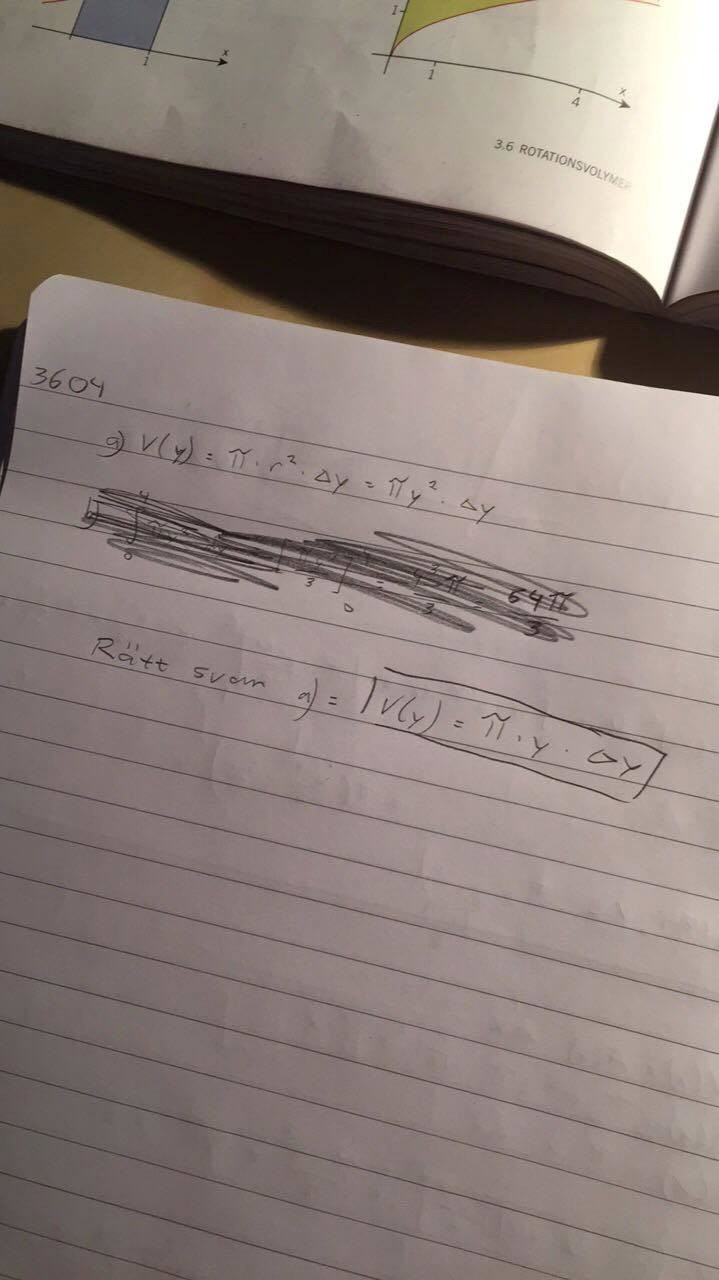 x
1
1
1
4
x
3.6 ROTATIONSVOLYMER
3604
a) V(y) = π · r² · Δy = πy² · Δy
4³π
64π
3
0
0
3
3
Rätt svar a) = V(y) = π · y · Δy